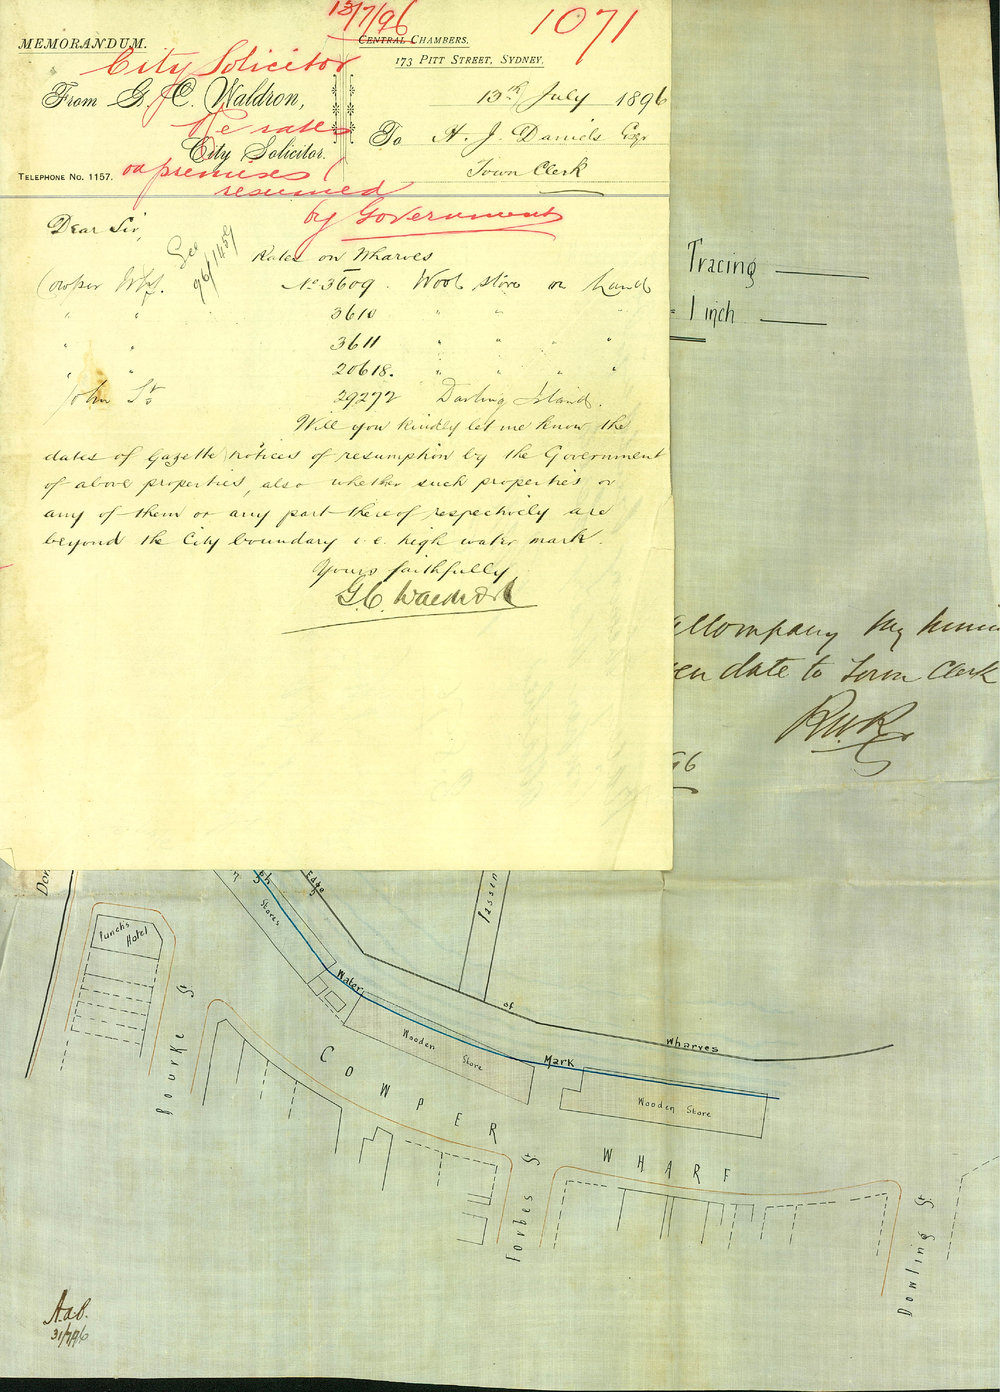 13/7/96
1071
MEMORANDUM.
City Solicitor
Central Chambers.
173 Pitt Street, Sydney,
From G. C. Waldron,
13th July 1896
Re rates
To H. J. Daniels Esqr
City Solicitor.
Town Clerk
Telephone No. 1157.
on premises
resumed
by Government
Dear Sir,
See 96/1459
Rates on Wharves
Cowper Whf. No 3609. Wool store on land
" " 3610 " " "
" " 3611 " " " "
" " 20618. " " " "
John St 29272 Darling Island.
Will you kindly let me know the
dates of Gazette notices of resumption by the Government
of above properties, also whether such properties or
any of them or any part thereof respectively are
beyond the City boundary i.e. high water mark.
Yours faithfully
G. C. Waldron
Tracing
= 1 inch
accompany my
date to Town Clerk
R.W.R.
96
Punch's Hotel
Stores
Edge
Water
of
Wharves
Mark
Wooden Store
Wooden Store
COWPER WHARF
Bourke St
Forbes St
Dowling St
A.a.B.
31/7/96